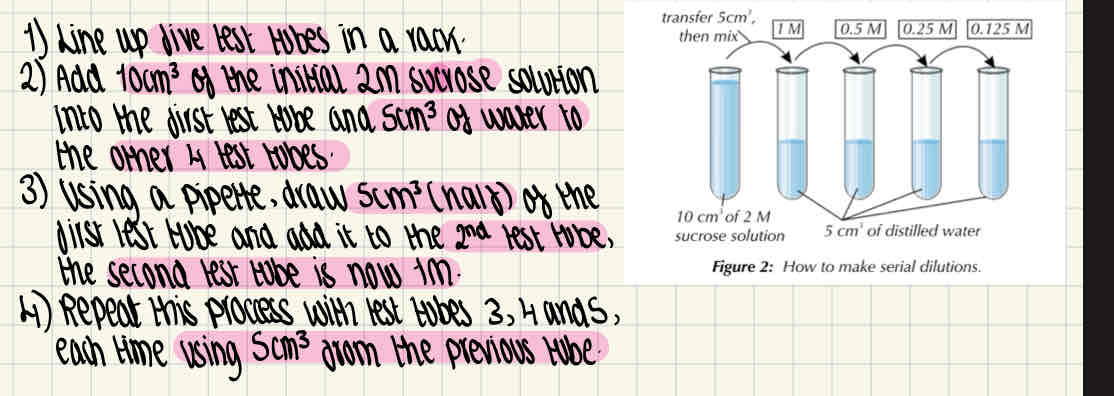 1) Line up five test tubes in a rack.
2) Add 10cm³ of the initial 2M sucrose solution
into the first test tube and 5cm³ of water to
the other 4 test tubes.
3) Using a pipette, draw 5cm³ (half) of the
first test tube and add it to the 2nd test tube,
the second test tube is now 1M.
4) Repeat this process with test tubes 3, 4 and 5,
each time using 5cm³ from the previous tube.
transfer 5cm³,
then mix
1 M 0.5 M 0.25 M 0.125 M
10 cm³ of 2 M
sucrose solution
5 cm³ of distilled water
Figure 2: How to make serial dilutions.